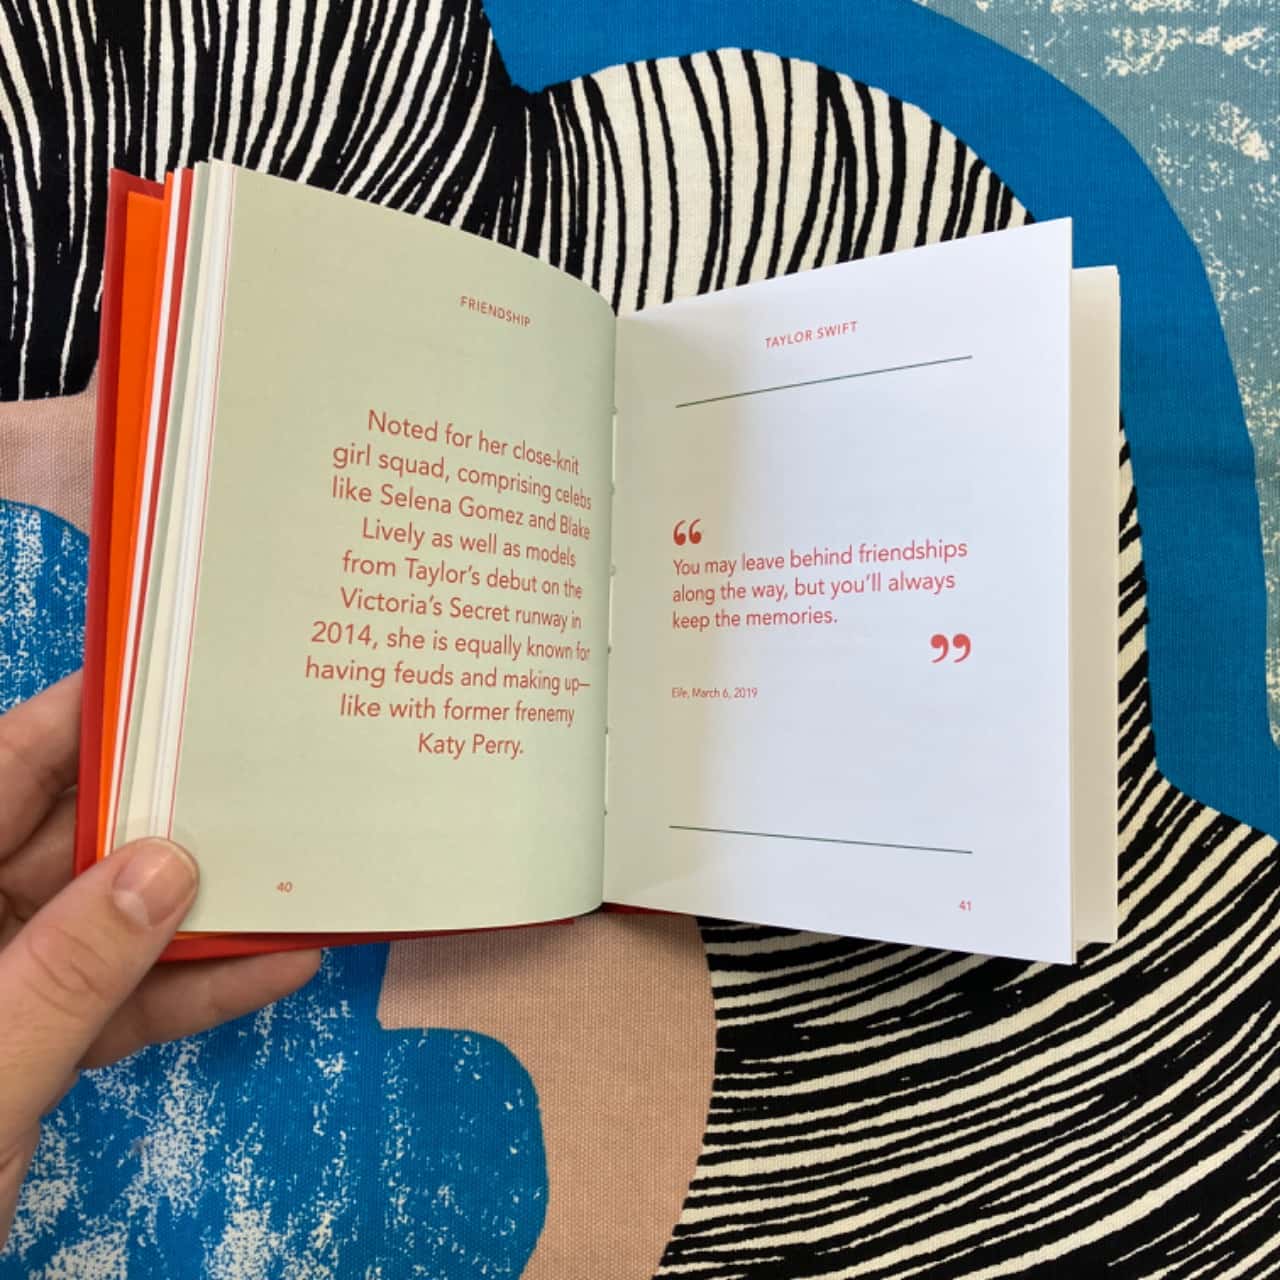 FRIENDSHIP
Noted for her close-knit
girl squad, comprising celebs
like Selena Gomez and Blake
Lively as well as models
from Taylor's debut on the
Victoria's Secret runway in
2014, she is equally known for
having feuds and making up—
like with former frenemy
Katy Perry.
40
TAYLOR SWIFT
“
You may leave behind friendships
along the way, but you'll always
keep the memories.
”
Elle, March 6, 2019
41